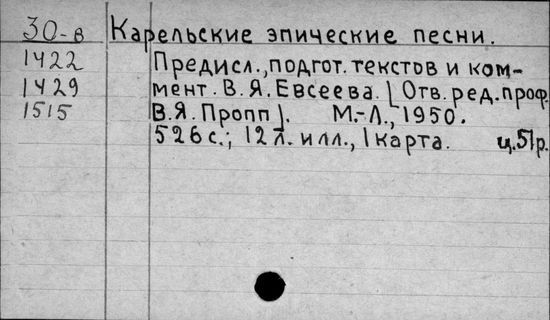 30-в Карельские эпические песни.
1422 Предисл., подгот. текстов и ком-
1429 мент. В.Я. Евсеева. [Отв. ред. проф.
1515 В.Я. Пропп]. М.-Л., 1950.
526 с.; 12 л. илл., 1 карта. ц. 51 р.